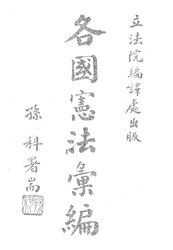 立法院編譯處出版
各國憲法彙編
孫科署耑